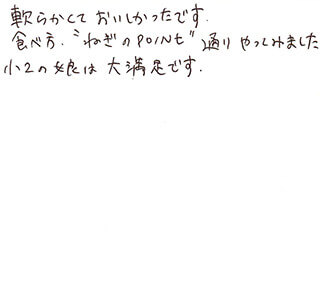 軟らかくて おいしかったです.
食べ方. "ねぎのPOINt" 通り やってみました
小2の娘は 大満足です.